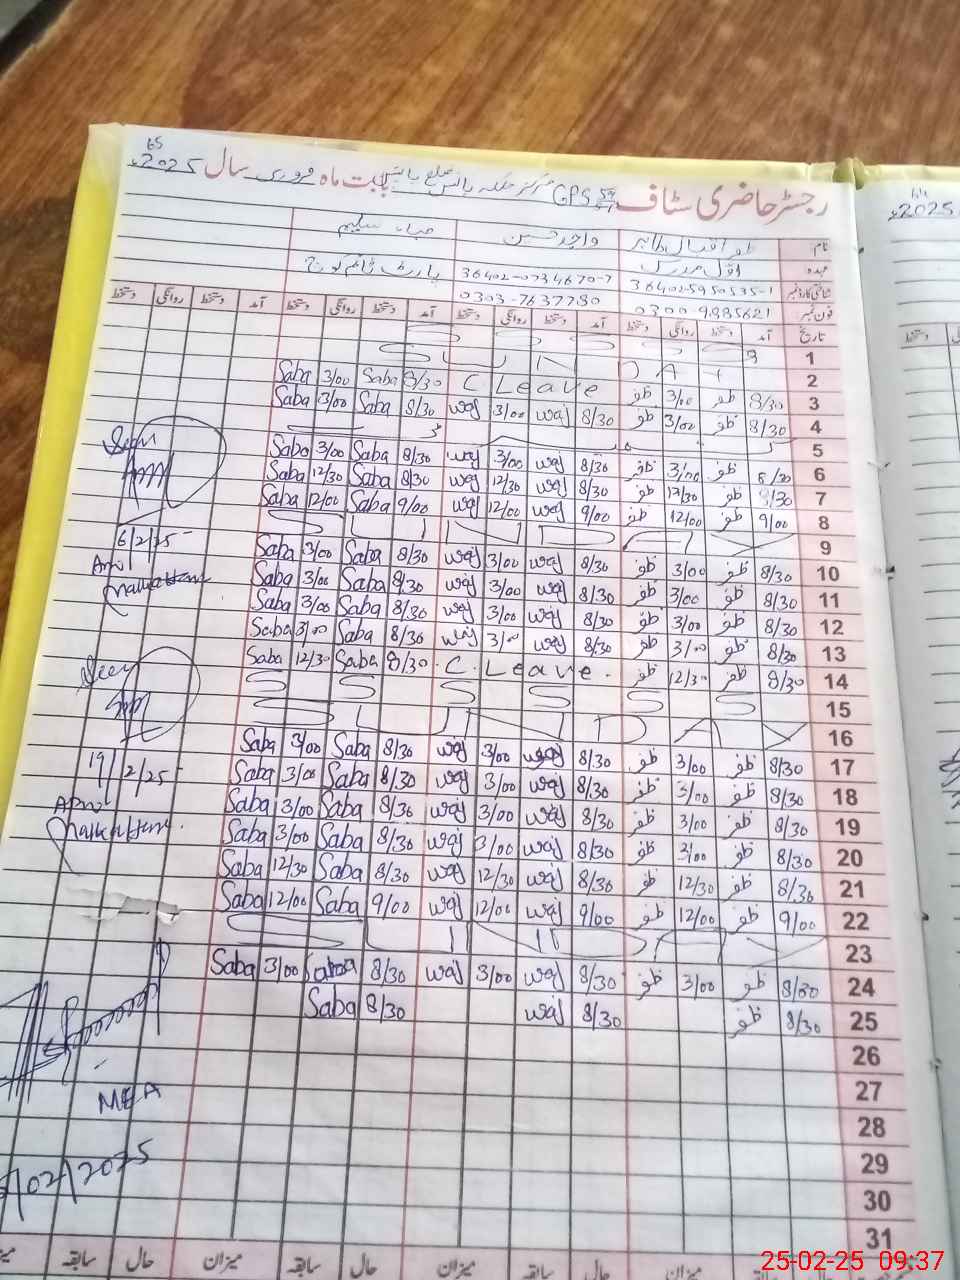 رجسٹر حاضری سٹاف GPS مرکز حلقہ پاکپتن ضلع پاکپتن بابت ماہ فروری سال 2025ء
نام ظفر اقبال طاہر واجد حسین صباء سلیم
عہدہ اوّل مدرس پارٹ ٹائم کوچ
شناختی کارڈ نمبر 36402-5950535-1 36402-0734670-7
فون نمبر 0300-9885621 0303-7637780
تاریخ آمد دستخط روانگی دستخط آمد دستخط روانگی دستخط آمد دستخط روانگی دستخط آمد دستخط روانگی دستخط
1
2 S U N D A Y
3 8/30 ظفر 3/00 ظفر C. Leave 8/30 Saba 3/00 Saba
4 8/30 ظفر 3/00 ظفر 8/30 waj 3/00 waj 8/30 Saba 3/00 Saba
5
6 8/30 ظفر 3/00 ظفر 8/30 waj 3/00 waj 8/30 Saba 3/00 Saba
7 8/30 ظفر 12/30 ظفر 8/30 waj 12/30 waj 8/30 Saba 12/30 Saba
8 9/00 ظفر 12/00 ظفر 9/00 waj 12/00 waj 9/00 Saba 12/00 Saba
9 S U N D A Y
10 8/30 ظفر 3/00 ظفر 8/30 waj 3/00 waj 8/30 Saba 3/00 Saba
11 8/30 ظفر 3/00 ظفر 8/30 waj 3/00 waj 8/30 Saba 3/00 Saba
12 8/30 ظفر 3/00 ظفر 8/30 waj 3/00 waj 8/30 Saba 3/00 Saba
13 8/30 ظفر 3/00 ظفر 8/30 waj 3/00 waj 8/30 Saba 3/00 Saba
14 8/30 ظفر 12/30 ظفر C. Leave. 8/30 Saba 12/30 Saba
15 S S S S S S
16 S U N D A Y
17 8/30 ظفر 3/00 ظفر 8/30 waj 3/00 waj 8/30 Saba 3/00 Saba
18 8/30 ظفر 3/00 ظفر 8/30 waj 3/00 waj 8/30 Saba 3/00 Saba
19 8/30 ظفر 3/00 ظفر 8/30 waj 3/00 waj 8/30 Saba 3/00 Saba
20 8/30 ظفر 3/00 ظفر 8/30 waj 3/00 waj 8/30 Saba 3/00 Saba
21 8/30 ظفر 12/30 ظفر 8/30 waj 12/30 waj 8/30 Saba 12/30 Saba
22 9/00 ظفر 12/00 ظفر 9/00 waj 12/00 waj 9/00 Saba 12/00 Saba
23 S U N D A Y
24 8/30 ظفر 3/00 ظفر 8/30 waj 3/00 waj 8/30 Saba 3/00 Saba
25 8/30 ظفر 8/30 waj 8/30 Saba
26
27
28
29
30
31
Seen
6/2/25
Seen
19/2/25
MEA
/02/2025
سابقہ حال میزان سابقہ حال میزان سابقہ حال میزان
2025ء
25-02-25 09:37